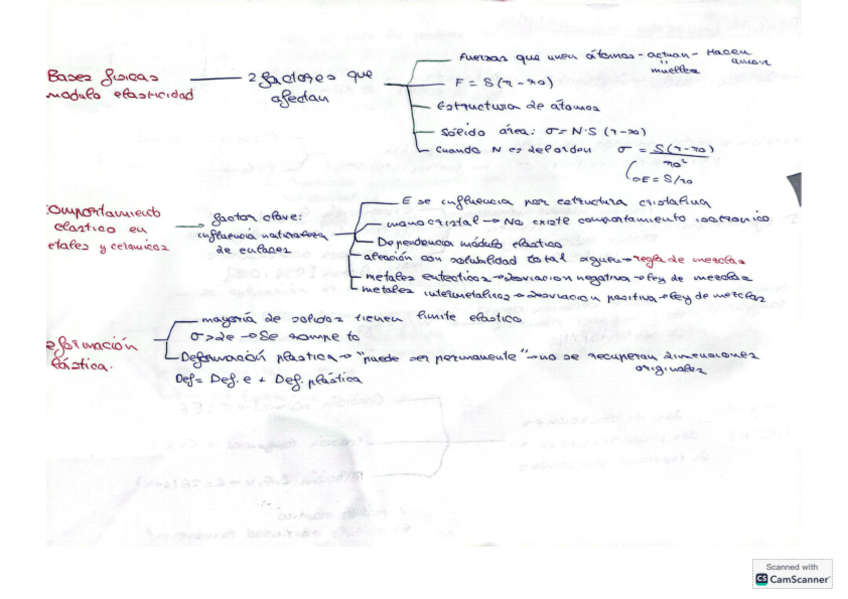 Bases físicas
módulo elasticidad
2 factores que
afectan
Fuerzas que unen átomos - actuan - Hacen
"muelles"
F = S(r - ro)
Estructura de átomos
Sólido área: σ = N·S (r - ro)
Cuando N es del orden σ = S(r - ro) / ro²
E = S/ro
omportamiento
elastico en
etales y ceramicos
factor clave:
influencia naturaleza
de enlaces
E se influencia por estructura cristalina
monocristal → No existe comportamiento isotronico
Dependencia módulo elastico
aleación con solubilidad total siguen → regla de mezclas
metales eutecticos → desviacion negativa → ley de mezclas
metales intermetalicos → desviacion positiva → ley de mezclas
eformación
lástica.
mayoría de solidos tienen limite elastico
Se rompe
Deformación plastica → "puede ser permanente" → no se recuperan dimensiones
originales
Def = Def. e + Def. plástica
Scanned with
CS CamScanner